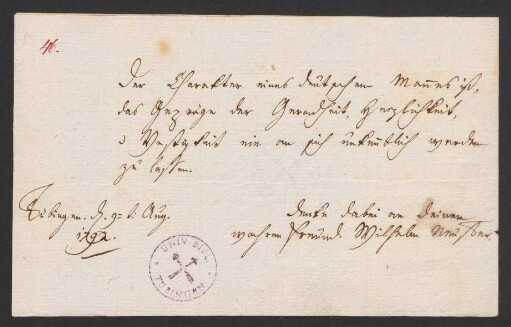 46.
Der Charakter eines deutschen Mannes ist,
das Gepräge der Geradheit, Herzlichkeit,
u Vestigkeit nie an sich unkentlich werden
zu lassen.
Tübingen. d. 9. t. Aug.
1792.
denke dabei an deinen
wahren Freund. Wilhelm
UNIV. BIBL.
TÜBINGEN